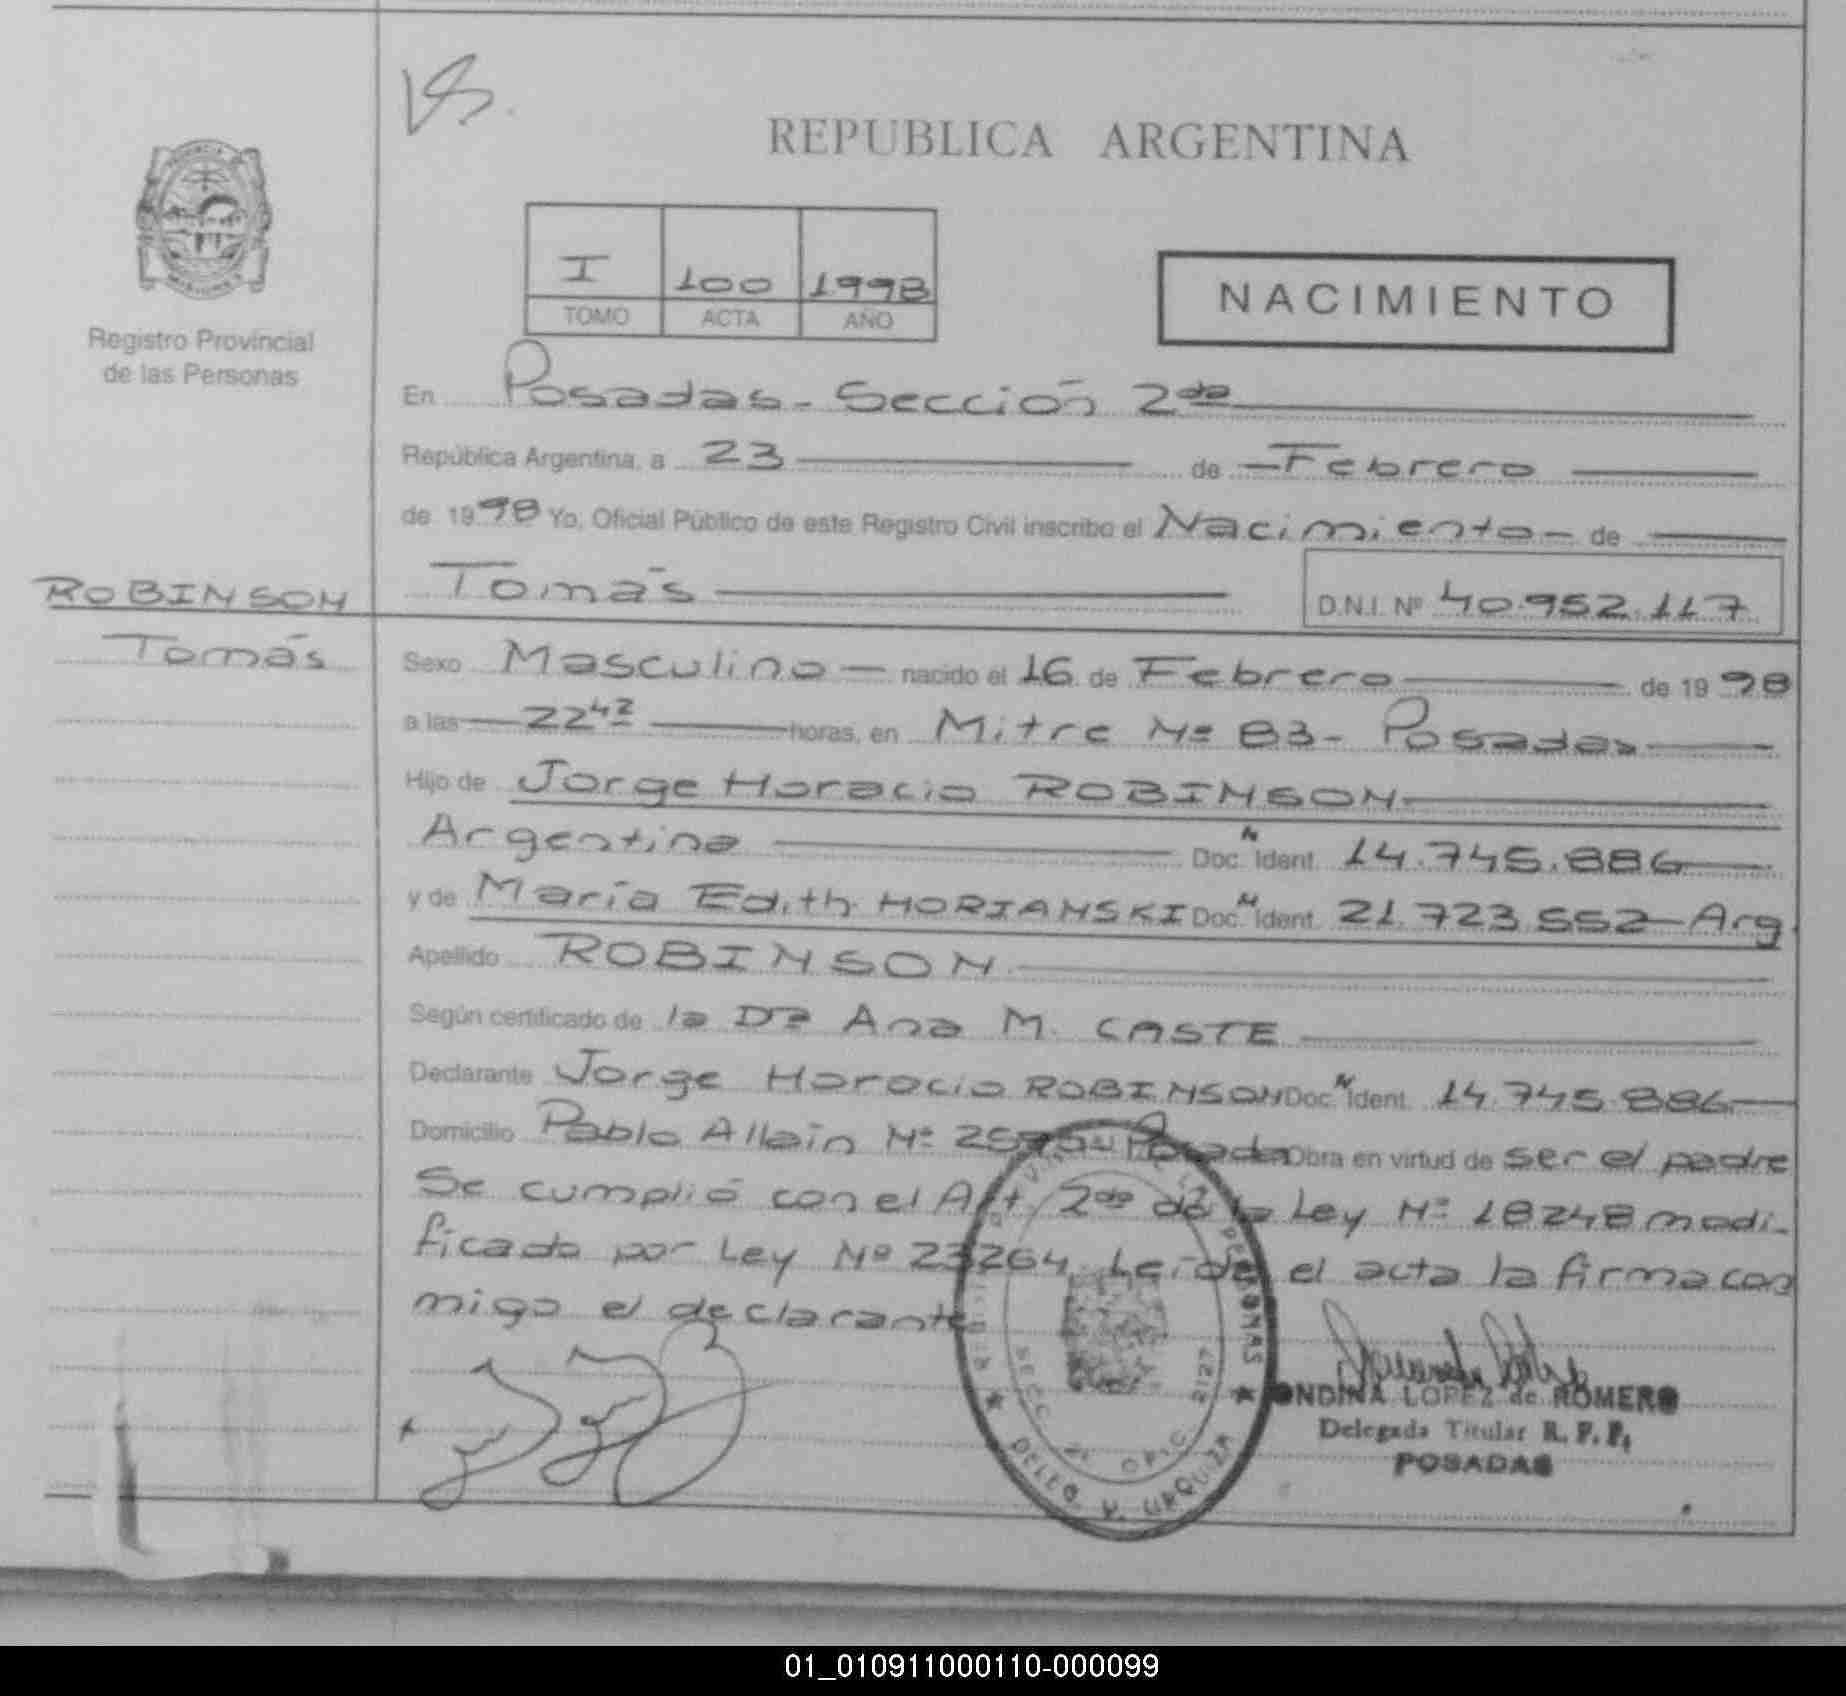 VB.
REPUBLICA ARGENTINA
I 100 1998
TOMO ACTA AÑO
NACIMIENTO
Registro Provincial
de las Personas
En Posadas - Sección 2da
República Argentina, a 23 de Febrero
de 1998 Yo, Oficial Público de este Registro Civil inscribo el Nacimiento - de
ROBINSON
Tomás
Tomás
D.N.I. Nº 40.952.117
Sexo Masculino - nacido el 16 de Febrero de 1998
a las 22 42 horas, en Mitre Nº 83 - Posadas
Hijo de Jorge Horacio ROBINSON
Argentina Doc. N Ident. 14.745.886
y de María Edith HORIANSKI Doc. N Ident. 21.723.552 - Arg.
Apellido ROBINSON
Según certificado de la Dra Ana M. CASTE
Declarante Jorge Horacio ROBINSON Doc. N Ident. 14.745.886
Domicilio Pablo Allaín Nº Posadas Obra en virtud de ser el padre
Se cumplió con el Art. 2do de la Ley Nº 18248 modi-
ficado por Ley Nº 23264. Leída el acta la firma con
migo el declarante
PERSONAS
SECC. 2
OFIC. 2127
DELEG. V. URQUIZA
ONDINA LOPEZ de ROMERO
Delegada Titular R. P. P.
POSADAS
01_010911000110-000099